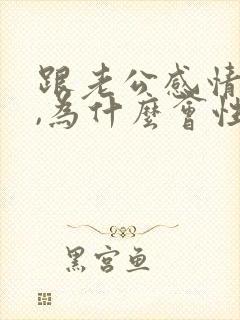 跟老公感情
,為什麼會性
黑宮魚